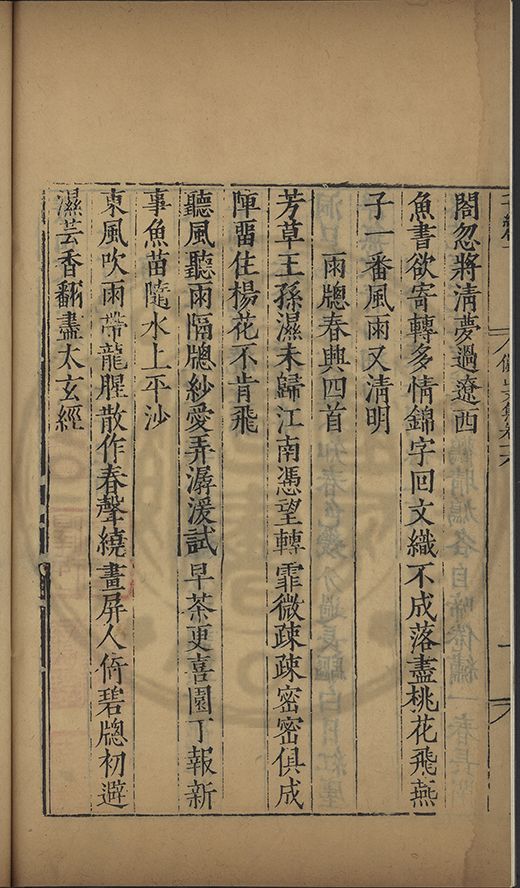 閤忽將清夢過遼西
魚書欲寄轉多情錦字回文織不成落盡桃花飛燕
子一番風雨又清明
雨牕春興四首
芳草王孫濕未歸江南憑望轉霏微疎疎密密俱成
陣畱住楊花不肯飛
聽風聽雨隔牕紗愛弄潺湲試早茶更喜園丁報新
事魚苗隨水上平沙
東風吹雨帶龍腥散作春聲繞畫屏人倚碧牕初避
濕芸香翻盡太玄經